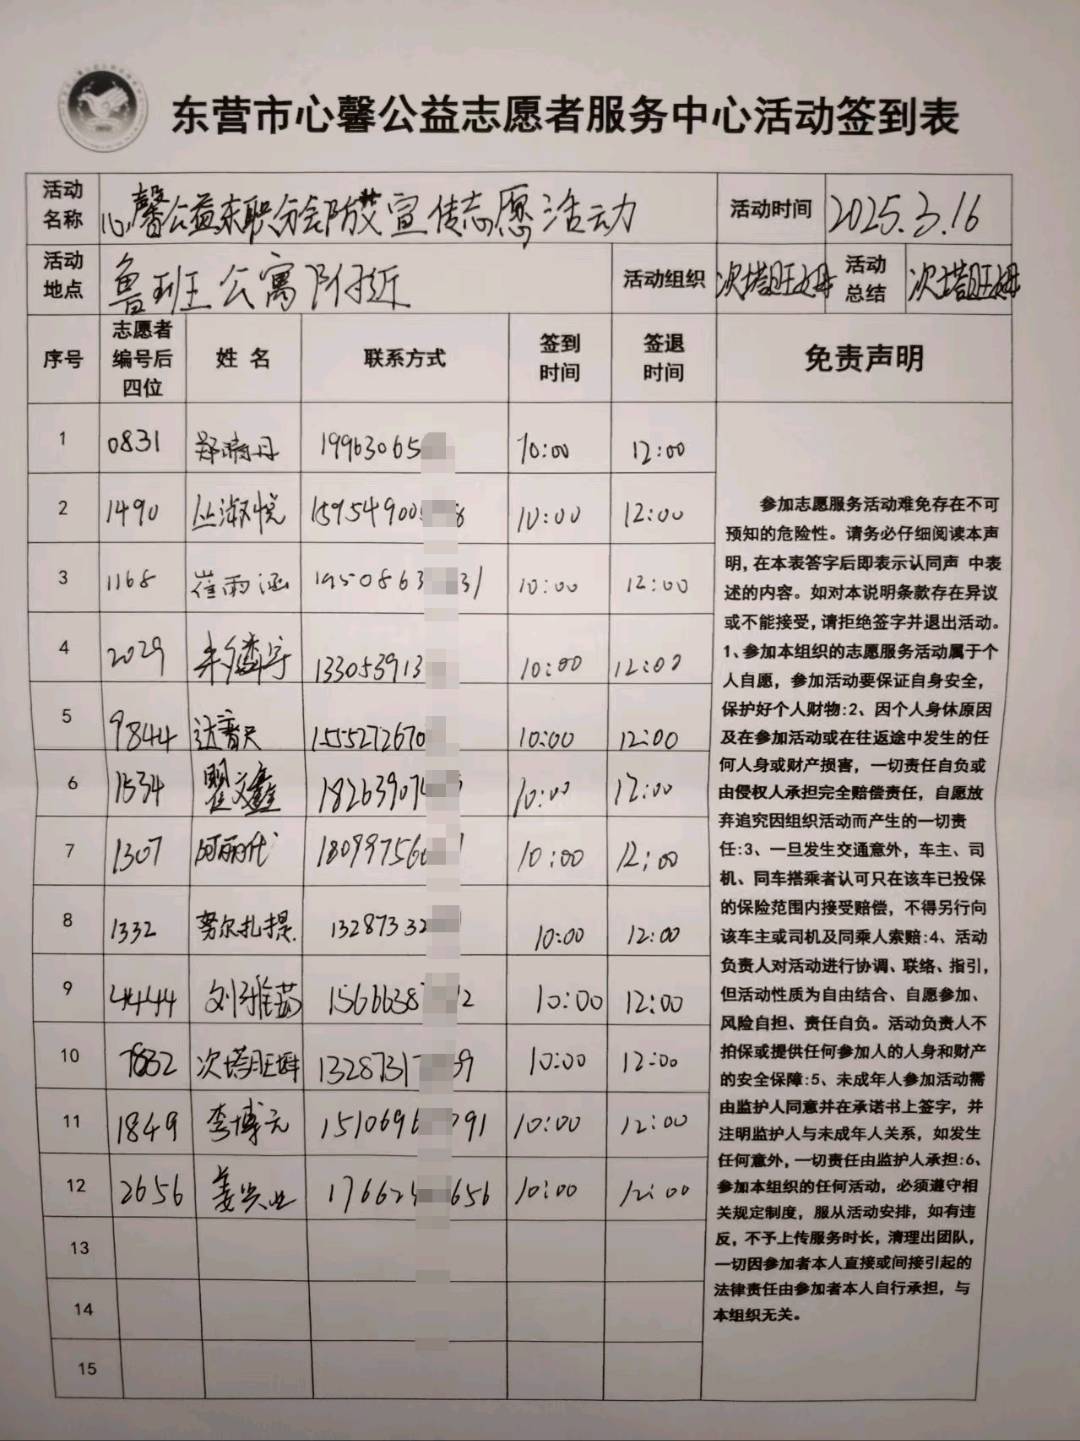 东营市心馨公益志愿者服务中心活动签到表
活动名称 心馨公益东职分会防艾宣传志愿活动 活动时间 2025.3.16
活动地点 鲁班公寓附近 活动组织 次塔旺姆 活动总结 次塔旺姆
序号 志愿者编号后四位 姓名 联系方式 签到时间 签退时间 免责声明
1 0831 郑晴丹 19963065 10:00 12:00
2 1490 丛淑悦 159549005 8 10:00 12:00
3 1168 崔雨涵 19508633 31 10:00 12:00
4 2029 133053913 10:00 12:00
5 9844 1555272670 10:00 12:00
6 1534 翟文鑫 18263907 10:00 12:00
7 1307 阿丽代 180997566 1 10:00 12:00
8 1332 努尔扎提 13287332 10:00 12:00
9 4444 刘雅茹 15666387 2 10:00 12:00
10 7832 次塔旺姆 13287317 39 10:00 12:00
11 1849 李博元 1510696 791 10:00 12:00
12 2656 姜兴业 176624 656 10:00 12:00
13
14
15
参加志愿服务活动难免存在不可
预知的危险性。请务必仔细阅读本声
明,在本表答字后即表示认同声 中表
述的内容。如对本说明条款存在异议
或不能接受,请拒绝签字并退出活动。
1、参加本组织的志愿服务活动属于个
人自愿,参加活动要保证自身安全,
保护好个人财物:2、因个人身休原因
及在参加活动或在往返途中发生的任
何人身或财产损害,一切责任自负或
由侵权人承担完全赔偿责任,自愿放
弃追究因组织活动而产生的一切责
任:3、一旦发生交通意外,车主、司
机、同车搭乘者认可只在该车已投保
的保险范围内接受赔偿,不得另行向
该车主或司机及同乘人索赔:4、活动
负责人对活动进行协调、联络、指引,
但活动性质为自由结合、自愿参加、
风险自担、责任自负。活动负责人不
拍保或提供任何参加人的人身和财产
的安全保障:5、未成年人参加活动需
由监护人同意并在承诺书上签字,并
注明监护人与未成年人关系,如发生
任何意外,一切责任由监护人承担:6、
参加本组织的任何活动,必须遵守相
关规定制度,服从活动安排,如有违
反,不予上传服务时长,清理出团队,
一切因参加者本人直接或间接引起的
法律责任由参加者本人自行承担,与
本组织无关。